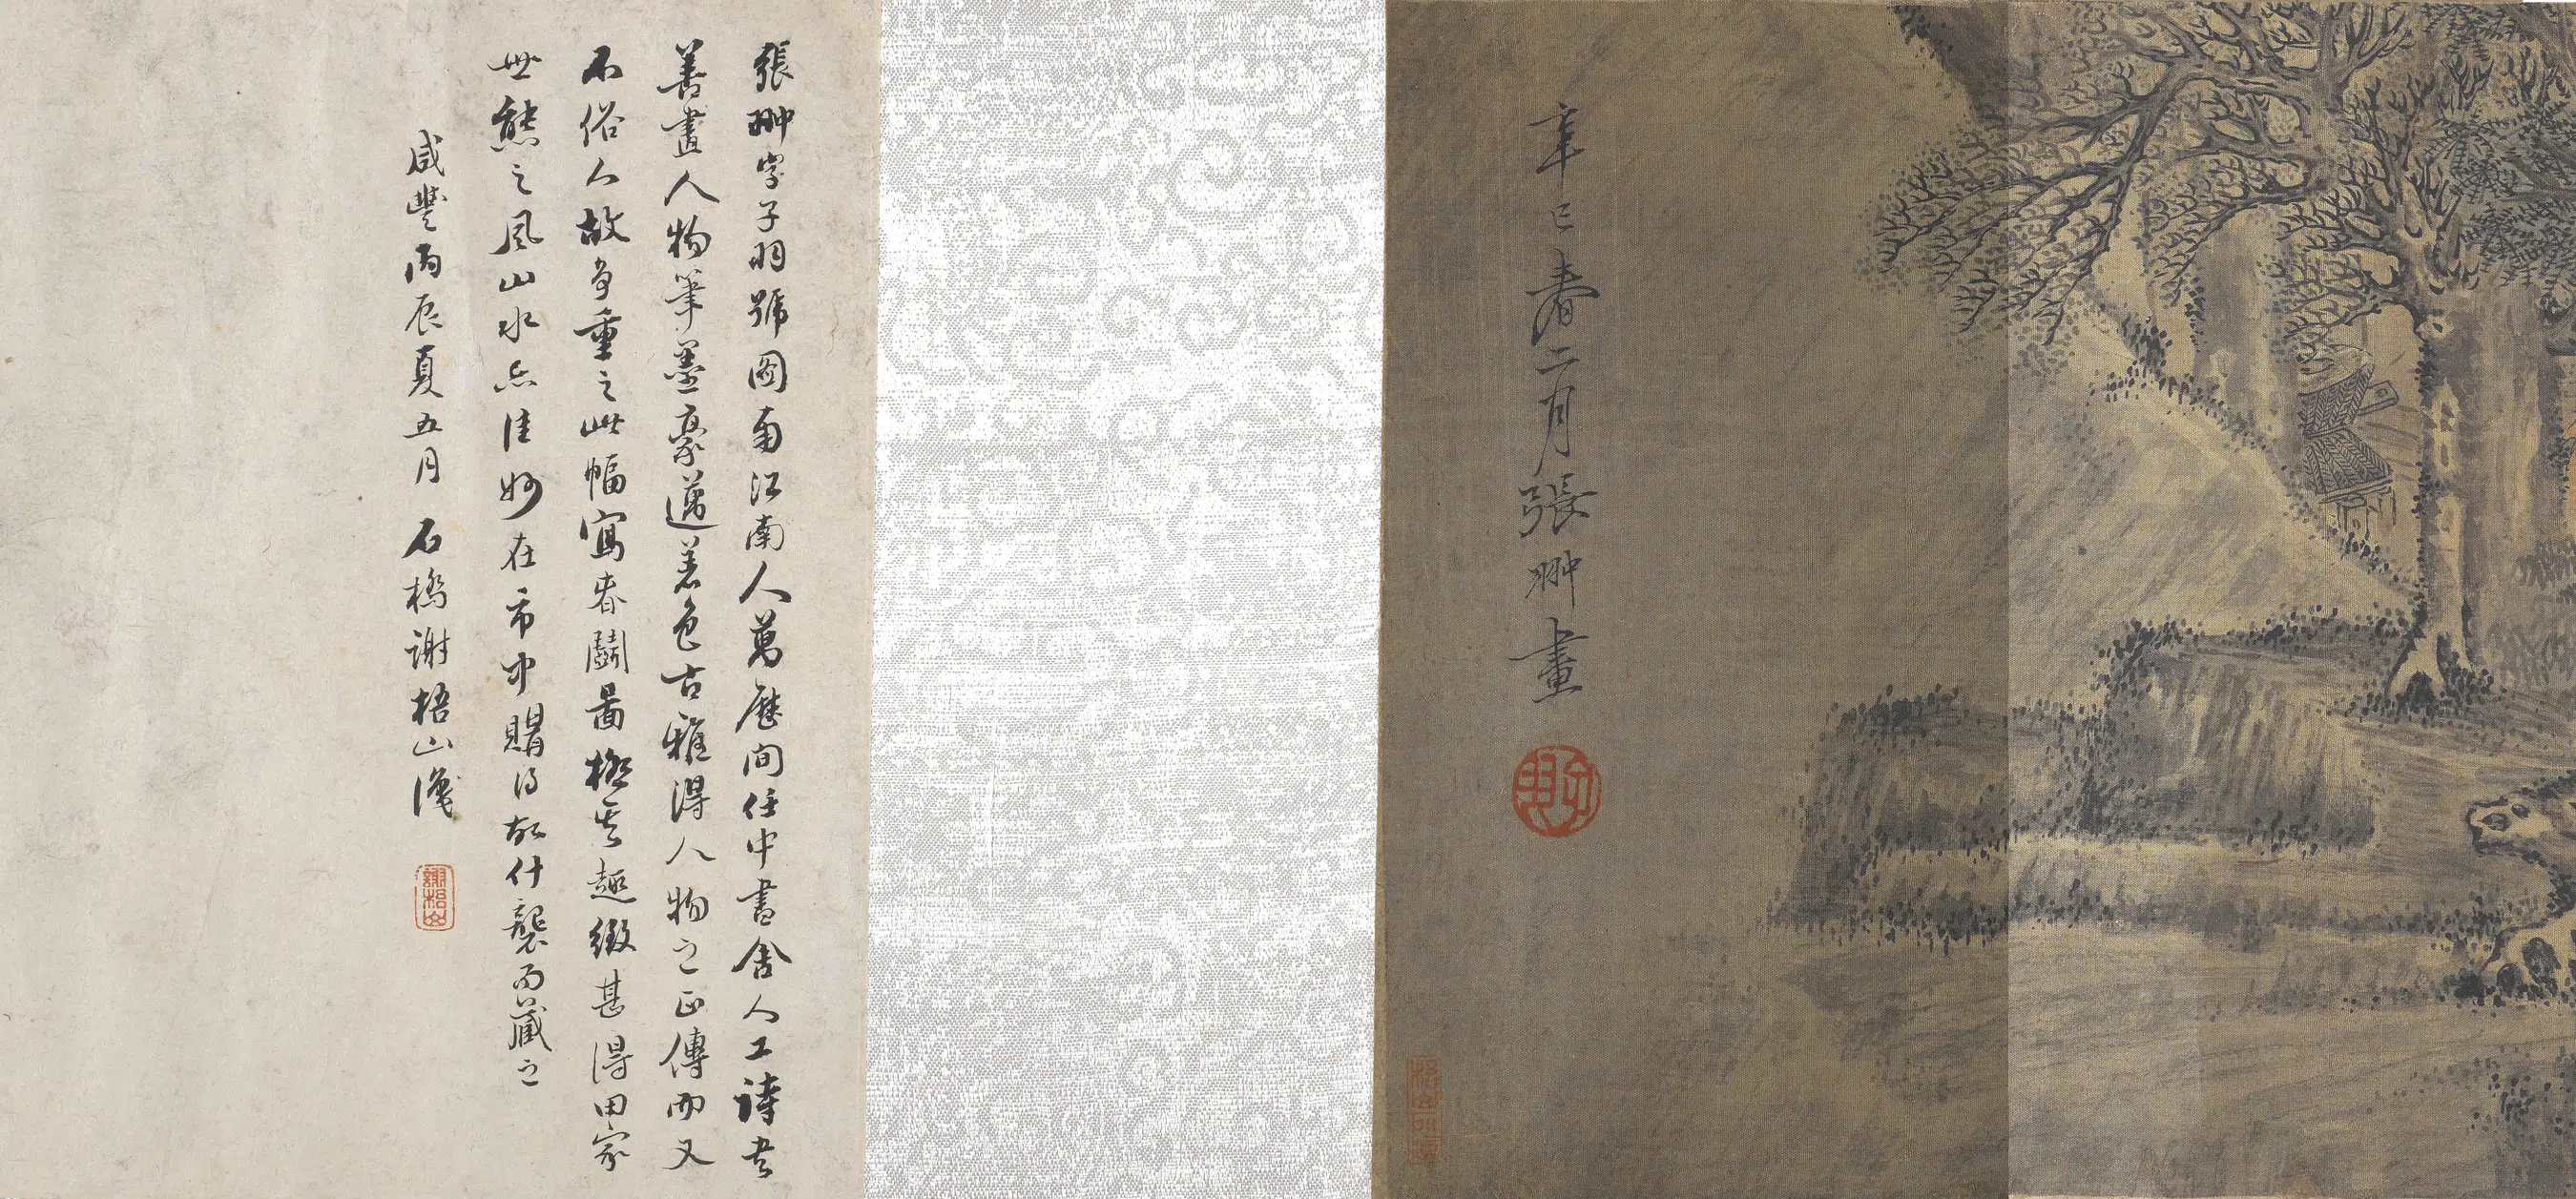 辛巳春二月張翀畫
張翀字子羽號圖南江南人萬歷间任中書舍人工詩書
善畫人物筆墨豪邁着色古雅得人物之正傳而又
不俗人故多重之此幅寫春鬪圖極其趣緻甚得田家
世態之風山水亦佳妙在市中購得故什襲而藏之
咸豐丙辰夏五月 石橋謝梧山識
謝梧山